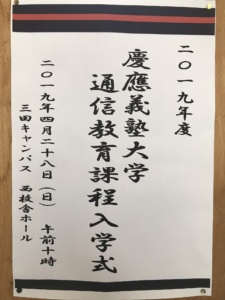 二〇一九年度
慶應義塾大学
通信教育課程入学式
二〇一九年四月二十八日（日）　午前十時
三田キャンパス　西校舎ホール